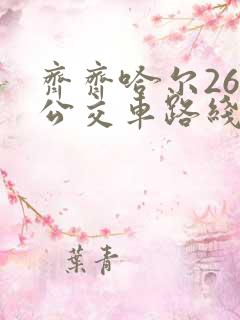 齊齊哈尔26
公交車路綫
葉青